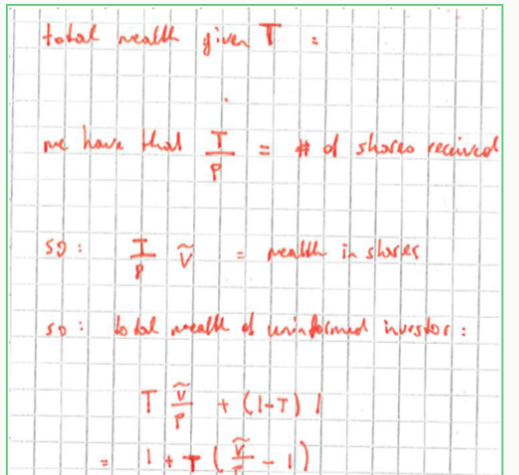 total wealth given T :
we have that T/P = # of shares received
so : T/P ṽ = wealth in shares
so : total wealth of uninformed investor :
T ṽ/P + (1-T) 1
= 1 + T (ṽ/P - 1)